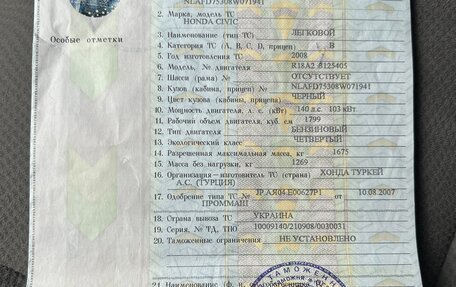 NLAFD75308W071941
2. Марка, модель ТС
HONDA CIVIC
Особые отметки
3. Наименование (тип ТС) ЛЕГКОВОЙ
4. Категория ТС (А, В, С, D, прицеп) В
5. Год изготовления ТС 2008
6. Модель, № двигателя R18A2 8125405
7. Шасси (рама) № ОТСУТСТВУЕТ
8. Кузов (кабина, прицеп) № NLAFD75308W071941
9. Цвет кузова (кабины, прицепа) ЧЕРНЫЙ
10. Мощность двигателя, л. с. (кВт) 140 л.с. 103 кВт.
11. Рабочий объем двигателя, куб. см 1799
12. Тип двигателя БЕНЗИНОВЫЙ
13. Экологический класс ЧЕТВЕРТЫЙ
14. Разрешенная максимальная масса, кг 1675
15. Масса без нагрузки, кг 1269
16. Организация—изготовитель ТС (страна) ХОНДА ТУРКЕЙ
А.С. (ТУРЦИЯ)
17. Одобрение типа ТС № JP.АЯ04.Е00627Р1 10.08.2007
ПРОММАШ
18. Страна вывоза ТС УКРАИНА
19. Серия, № ТД, ТПО 10009140/210908/0030031
20. Таможенные ограничения НЕ УСТАНОВЛЕНО
ТАМОЖЕНН
21. Наименование (ф. и.